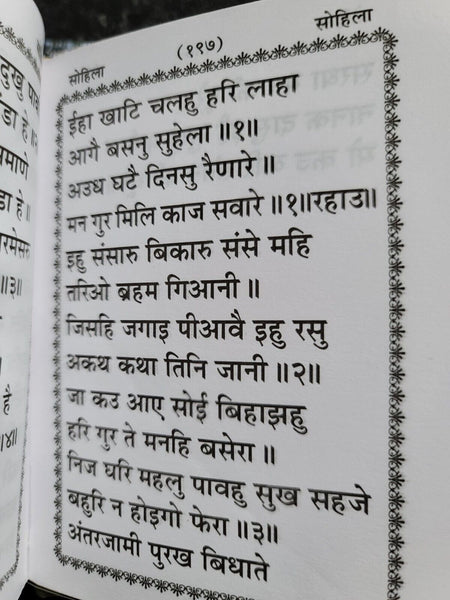 सोहिला (१९७) सोहिला
ईहा खाटि चलहु हरि लाहा
आगै बसनु सुहेला ॥१॥
अउध घटै दिनसु रैणारे ॥
मन गुर मिलि काज सवारे ॥१॥रहाउ॥
इहु संसारु बिकारु संसे महि
तरिओ ब्रहम गिआनी ॥
जिसहि जगाइ पीआवै इहु रसु
अकथ कथा तिनि जानी ॥२॥
जा कउ आए सोई बिहाझहु
हरि गुर ते मनहि बसेरा ॥
निज घरि महलु पावहु सुख सहजे
बहुरि न होइगो फेरा ॥३॥
अंतरजामी पुरख बिधाते